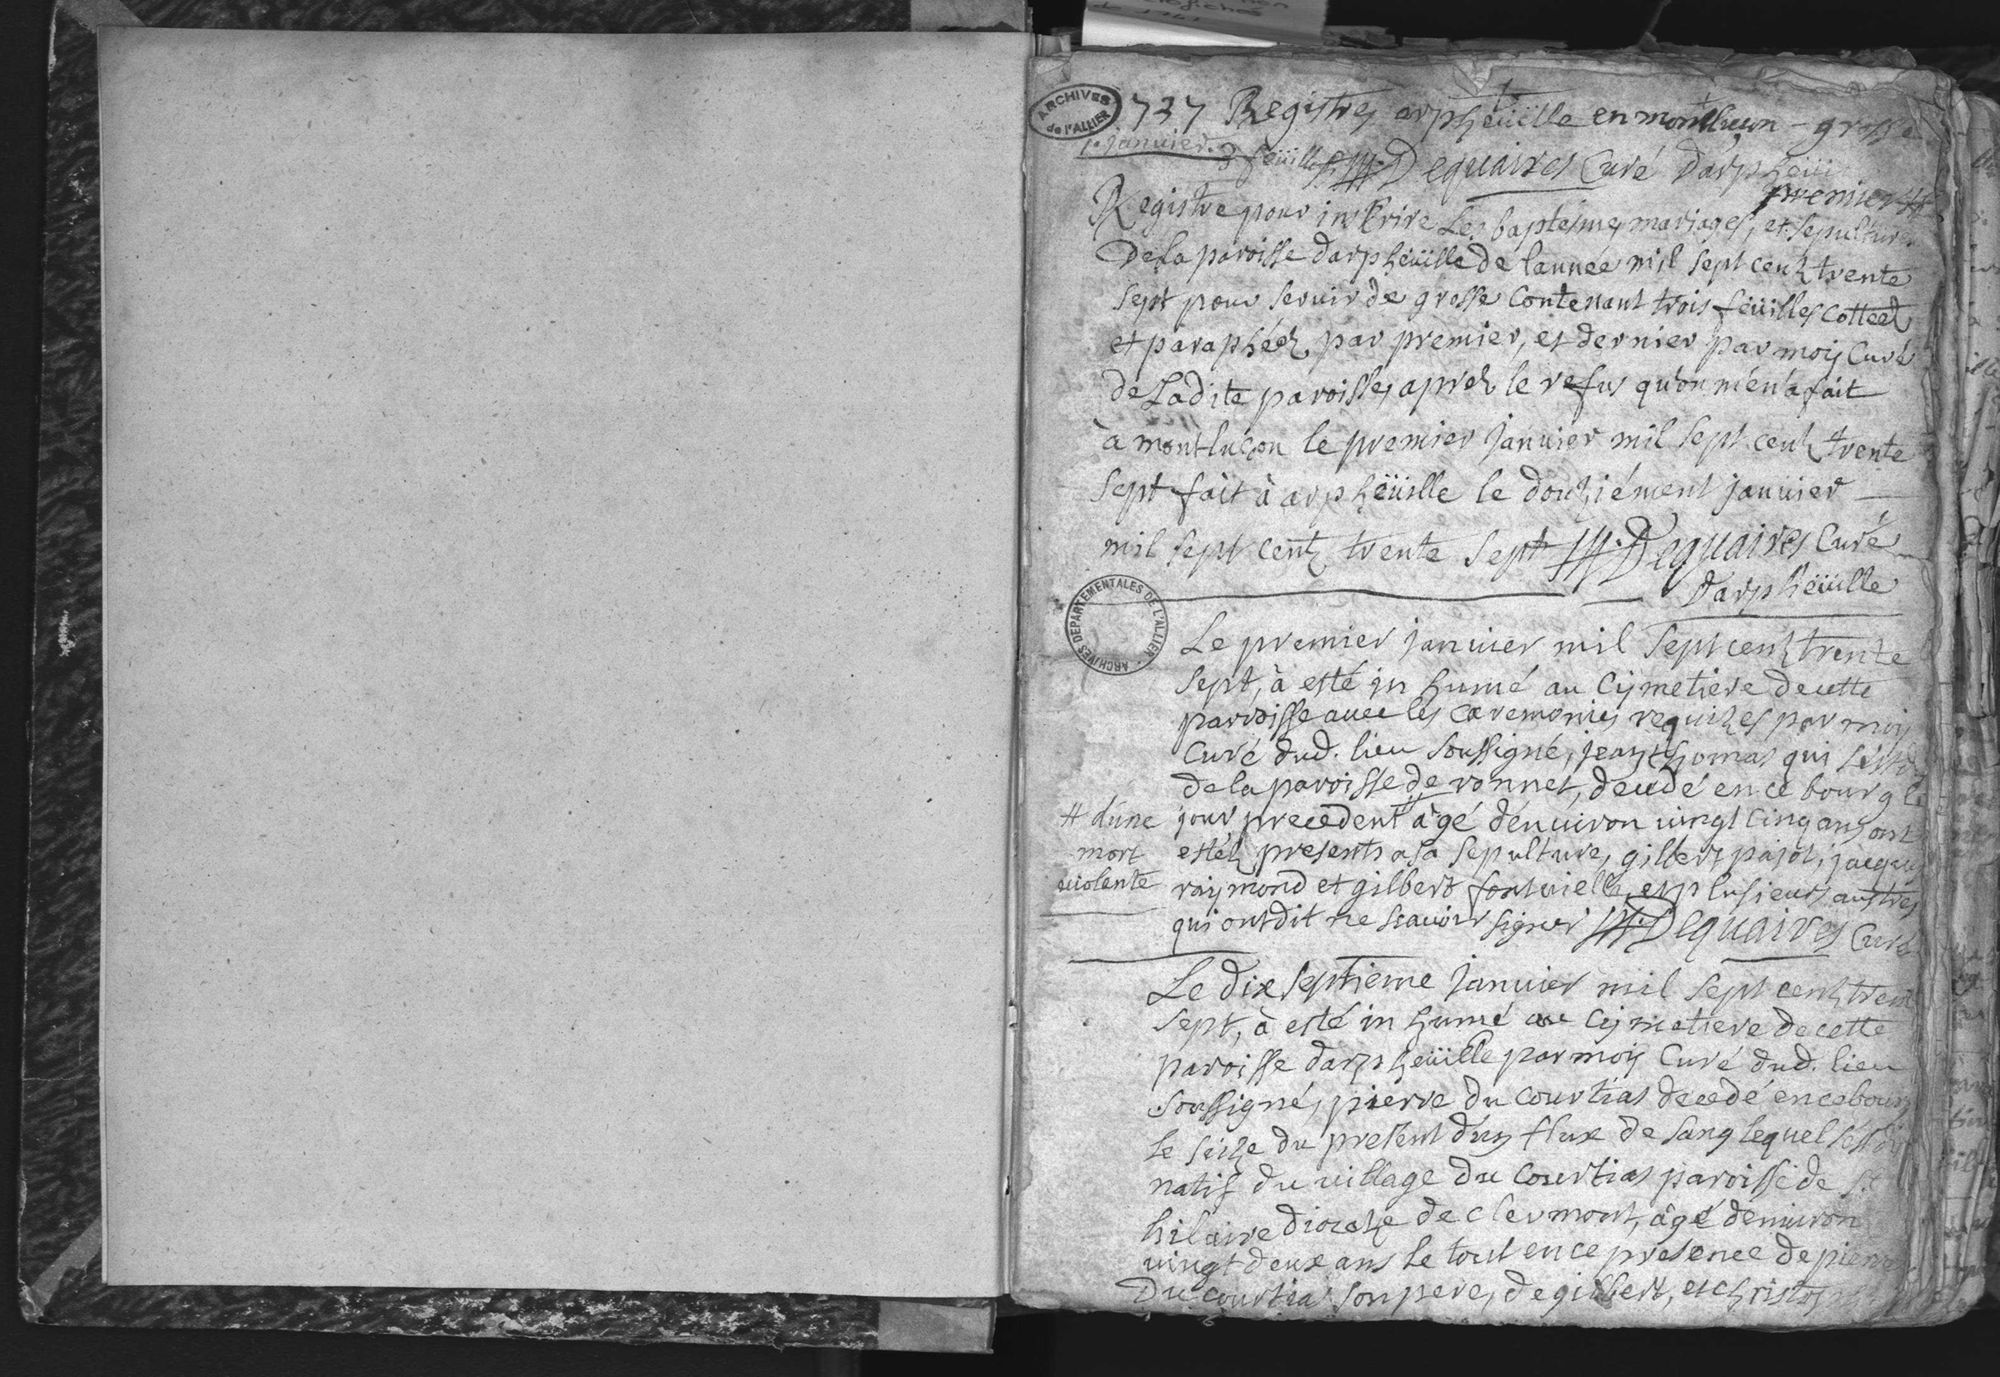 ARCHIVES
de l'ALLIER
737 Registres arpheüille en montluçon - grosse
1.r janvier. 3 feüilles Dequaires Curé Darpheüi
premier
Registre pour inscrire Les baptesmes mariages, et sepultures
De la paroisse darpheüille de lannee mil sept centz trente
sept pour servir de grosse contenant trois feüilles cotteez
et parapheéz par premier, et dernier par moij Curé
de Ladite paroisse, aprez le refus qu'on m'en a fait
à montluçon le premier janvier mil sept centz trente
sept fait à arpheüille le douziément janvier
mil sept centz trente sept Dequaires Curé
Darpheüille
ARCHIVES DEPARTEMENTALES DE L'ALLIER
Le premier janvier mil sept centz trente
sept, à esté in humé au Cijmetiere de cette
paroisse avec les ceremonies requizes par moij
Curé dud. lieu soussigné, jean thomas qui
de la paroisse de ronnet, decedé en ce bourg le
jour precedent # âgé dénviron vingt cinq ans ont
# dúne
mort
violente
estéz presents a sa sepulture, gilbert pajot, jacque
raijmond et gilbert fontvielle, et plusieurs austres
qui ont dit ne scavoir signer Dequaires Curé
Le dix septieme janvier mil sept centz trent
sept, à esté in humé au Cijmetiere de cette
paroisse darpheüille par moij Curé dud. lieu
soussigné, pierre du courtias decedé en ce bourg
le seize du present dún flux de sang lequel
natif du village du courtias paroisse de st
hilaire dioceze de clermont, âgé denviron
vingt deux ans le tout en ce presence de pierre
Du courtias son pere, de gilbert, et christo